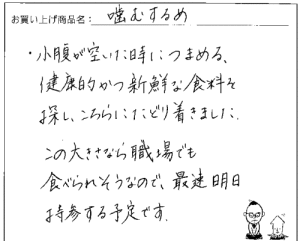 お買い上げ商品名： 噛むするめ
・小腹が空いた時につまめる、
健康的かつ新鮮な食料を
探し、こちらにたどり着きました。
この大きさなら職場でも
食べられそうなので、最速明日
持参する予定です。